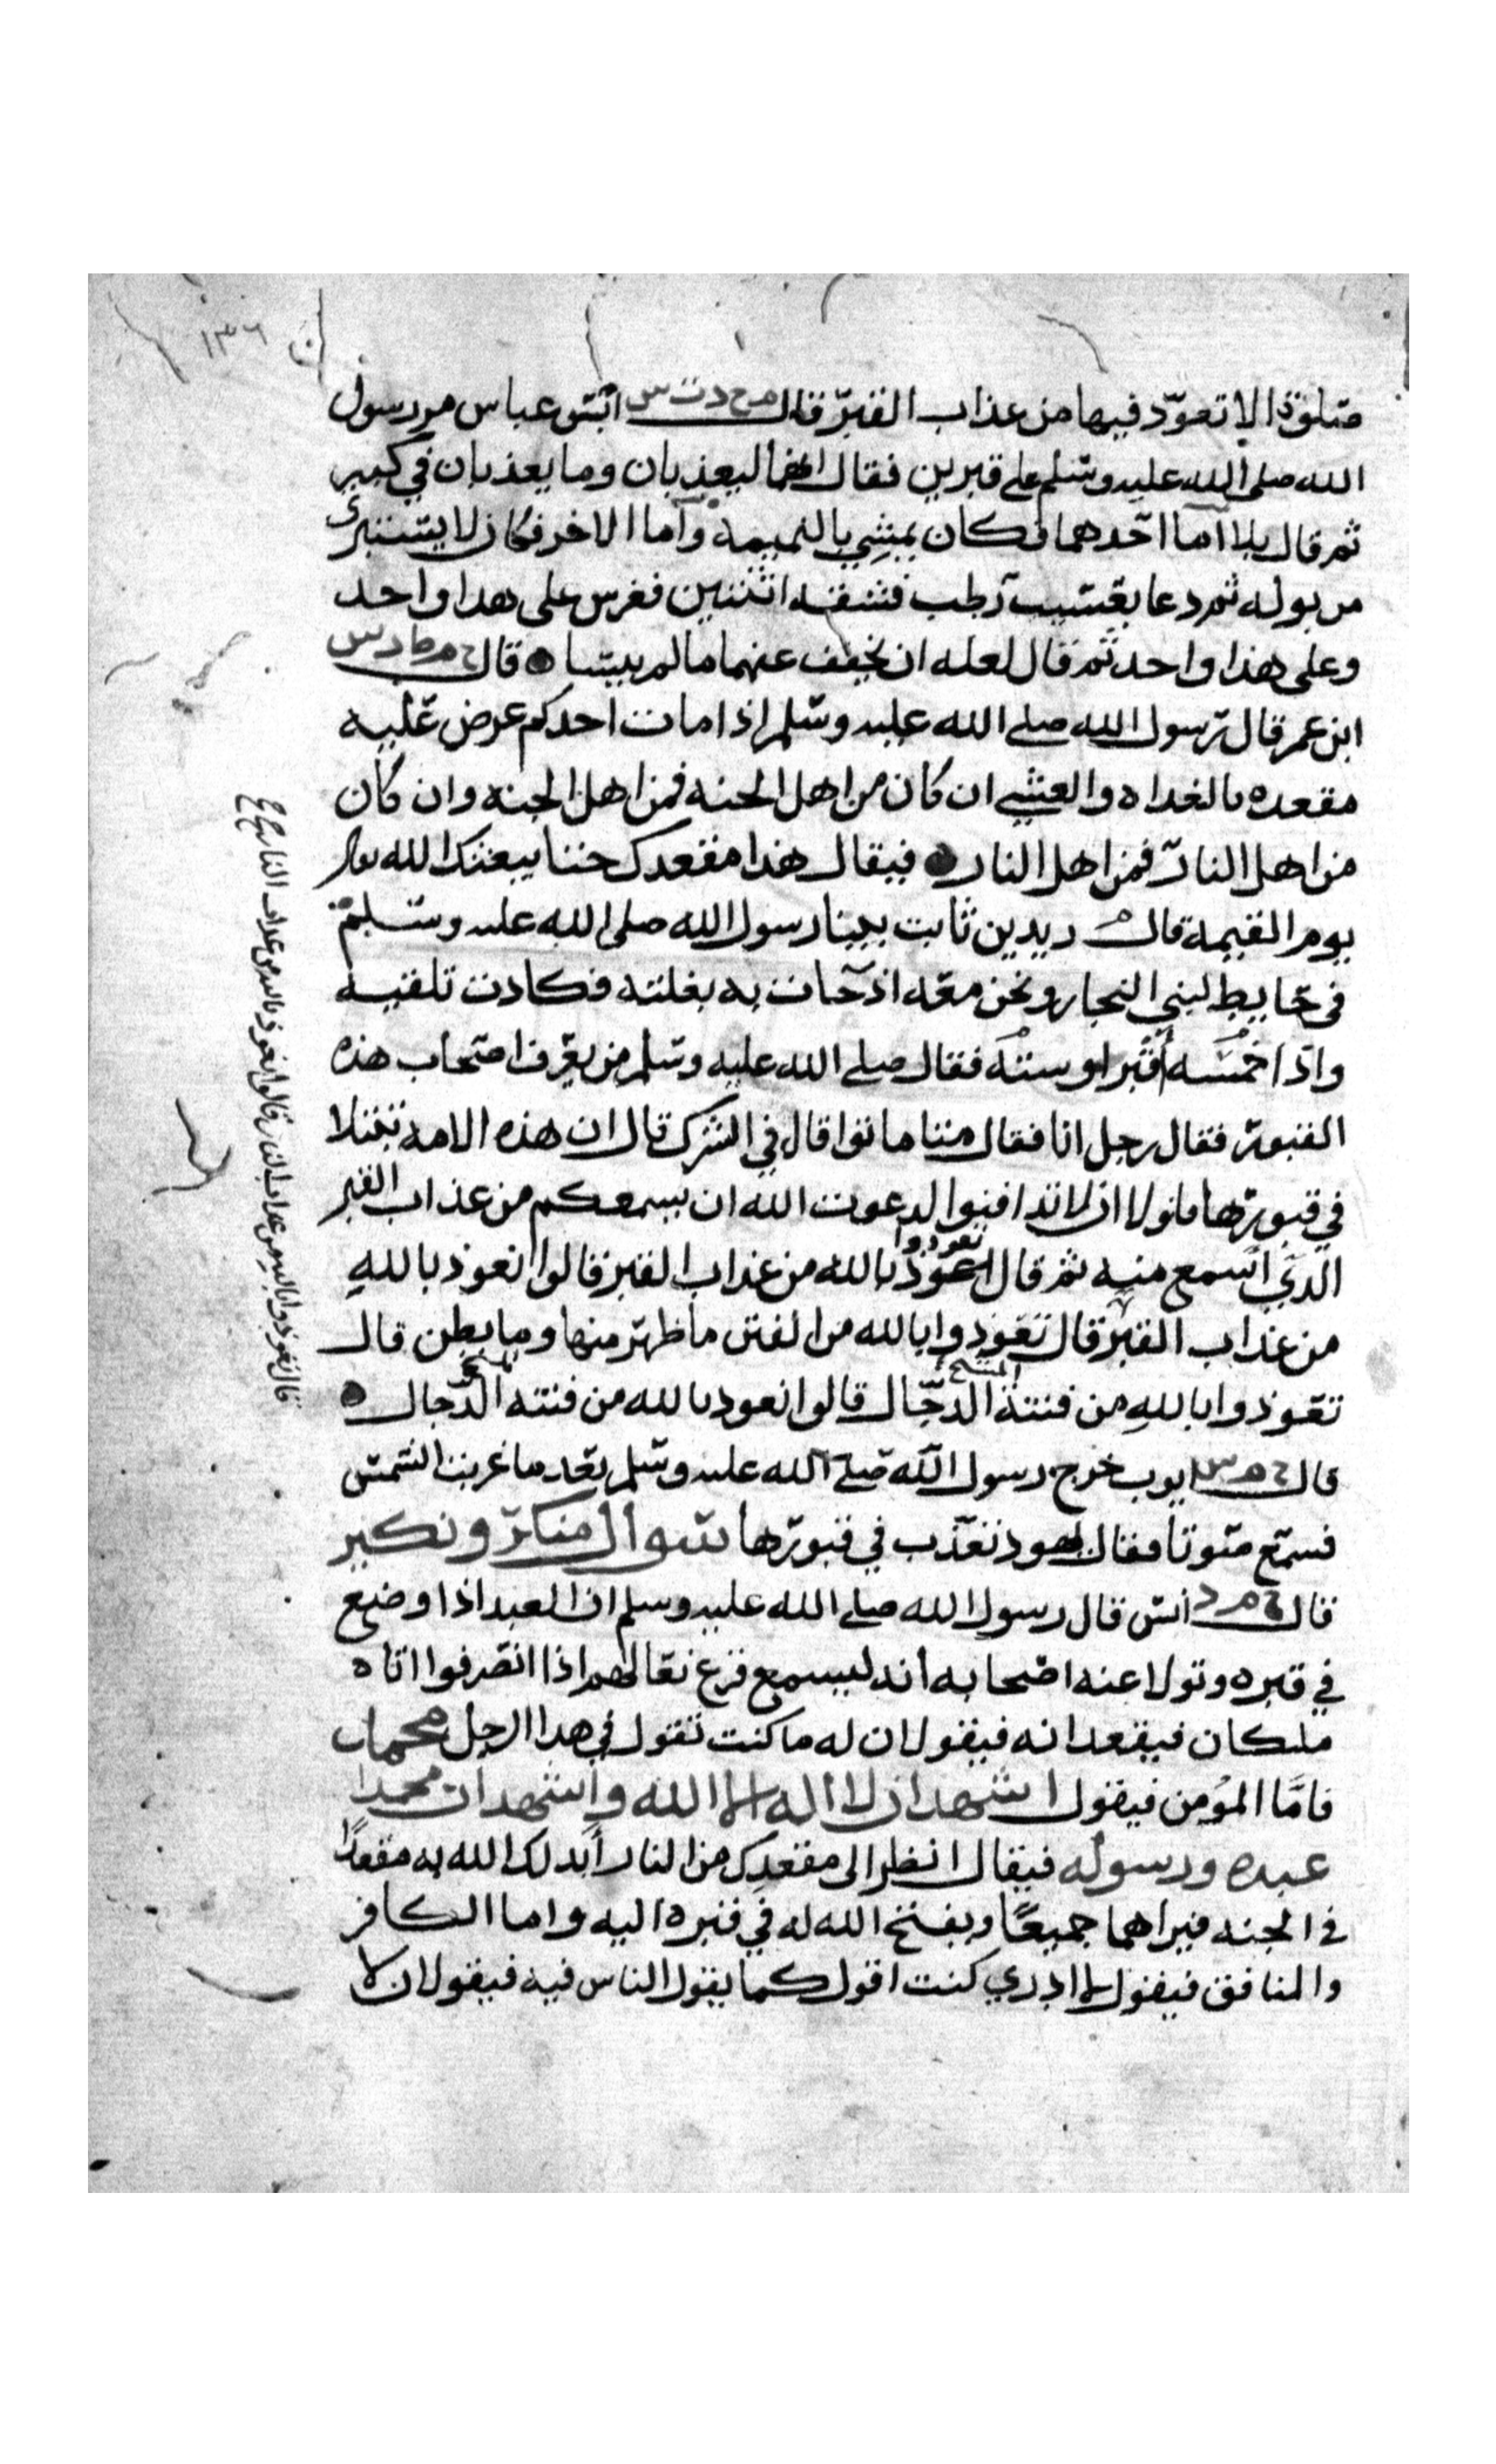 ١٣٦
صلوة الا تعوّد فيها من عذاب القبر قال م خ د ت س ابن عباس مر رسول
الله صلى الله عليه وسلم على قبرين فقال انهما ليعذبان وما يعذبان في كبير
ثم قال بلا اما احدهما فكان يمشي بالنميمة واما الاخر فكان لا يستنبرى
من بوله ثم دعا بعسيب رطب فشقه اثنين فغرس على هدا واحد
وعلى هذا واحد ثم قال لعله ان يخفف عنهما ما لم ييبسا قال خ م ط د س
ابن عمر قال رسول الله صلى الله عليه وسلم اذا مات احدكم عرض عليه
مقعده بالغداه والعشي ان كان من اهل الجنه فمن اهل الجنه وان كان
من اهل النار فمن اهل النار فيقال هذا مقعدك حتنا يبعثك الله
يوم القيمة قال م زيد بن ثابت بينا رسول الله صلى الله عليه وسلم
في حايط لبني النجار ونحن معه اذ حات به بغلته فكادت تلقيه
واذا خمسه اقبر او سته فقال صلى الله عليه وسلم من يعرف اصحاب هذه
القبور فقال رجل انا فقال متنا ماتوا قال في الشرك قال ان هذه الامه تبتلا
في قبورها فلولا ان لا تدافنوا لدعوت الله ان يسمعكم من عذاب القبر
الذي اسمع منه ثم قال تعوذوا بالله من عذاب القبر قالوا نعوذ بالله
من عذاب القبر قال تعوذوا بالله من الفتن ما ظهر منها وما بطن قال
تعوذوا بالله من فتنة المسيح الدجال قالوا نعود بالله من فتنه المسيح الدجال
قال خ م س ايوب خرج رسول الله صلى الله عليه وسلم بعد ما غربت الشمس
فسمع صوتا فقال يهود تعذب في قبورها سوال منكر ونكير
قال خ م د انس قال رسول الله صلى الله عليه وسلم ان العبد اذا وضع
في قبره وتولا عنه اصحابه انه ليسمع قرع نعالهم اذا انصرفوا اتاه
ملكان فيقعدانه فيقولان له ما كنت تقول في هدا الرجل محمد
فامّا المؤمن فيقول اشهد ان لا اله الا الله واشهد ان محمدا
عبده ورسوله فيقال انظر الى مقعدك من النار أبدلك الله به مقعدًا
في الجنه فيراهما جميعًا ويفتح الله له في قبره اليه واما الكافر
والمنافق فيقول لا ادري كنت اقول كما يقول الناس فيه فيقولان لا
قال تعوذوا بالله من عذاب النار قالوا نعوذ بالله من عذاب النار صح